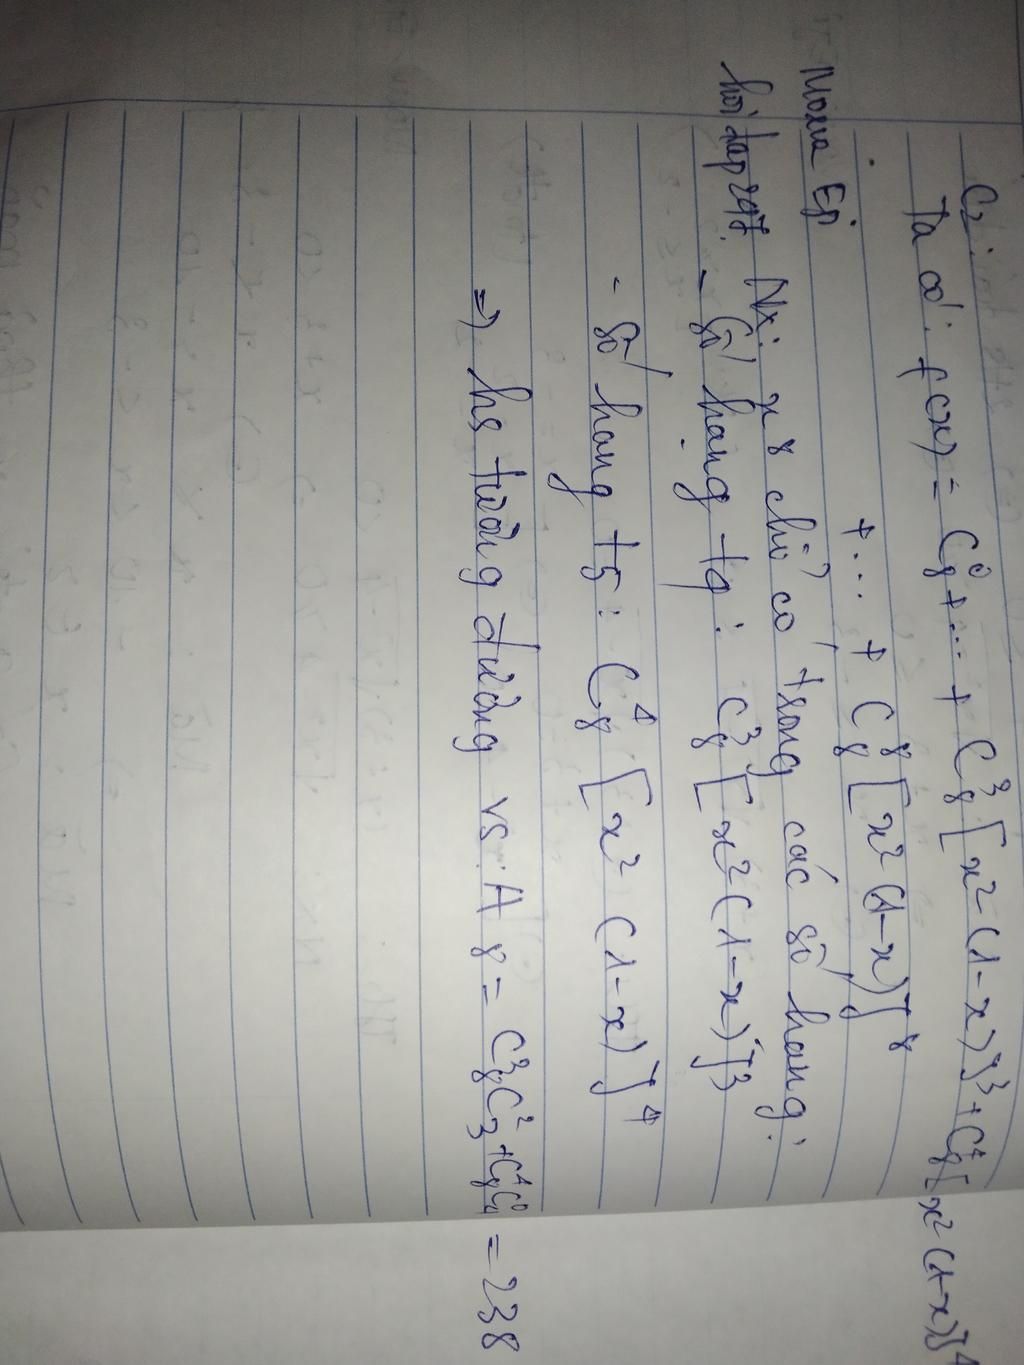 C2:
Ta có: f(x) = C₈⁰ + ... + C₈³[x²(1-x)]³ + C₈⁴[x²(1-x)]⁴
+ ... + C₈⁸[x²(1-x)]⁸
Nx: x⁸ chỉ có trong các số hạng:
- Số hạng t4: C₈³[x²(1-x)]³
- Số hạng t5: C₈⁴[x²(1-x)]⁴
=> hs tương đương vs: A8 = C₈³C₃² + C₈⁴C₄⁰ = 238
Moxia Ep
hoidap247